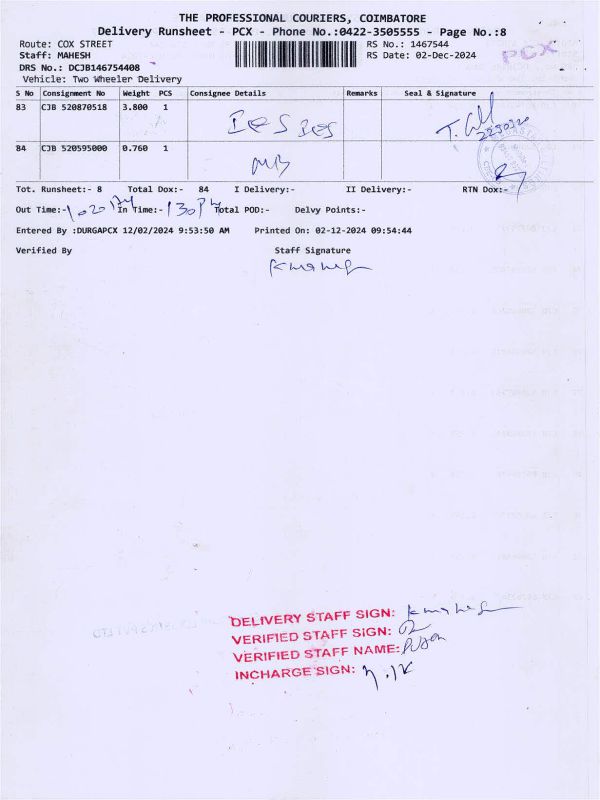 THE PROFESSIONAL COURIERS, COIMBATORE
Delivery Runsheet - PCX - Phone No.:0422-3505555 - Page No.:8
Route: COX STREET RS No.: 1467544
PCX
Staff: MAHESH RS Date: 02-Dec-2024
DRS No.: DCJB146754408
Vehicle: Two Wheeler Delivery
S No Consignment No Weight PCS Consignee Details Remarks Seal & Signature
83 CJB 520870518 3.800 1
84 CJB 520595000 0.760 1
Tot. Runsheet:- 8 Total Dox:- 84 I Delivery:- II Delivery:- RTN Dox:-
Out Time:- In Time:- Total POD:- Delvy Points:-
Entered By :DURGAPCX 12/02/2024 9:53:50 AM Printed On: 02-12-2024 09:54:44
Verified By Staff Signature
DELIVERY STAFF SIGN:
VERIFIED STAFF SIGN:
VERIFIED STAFF NAME:
INCHARGE SIGN: